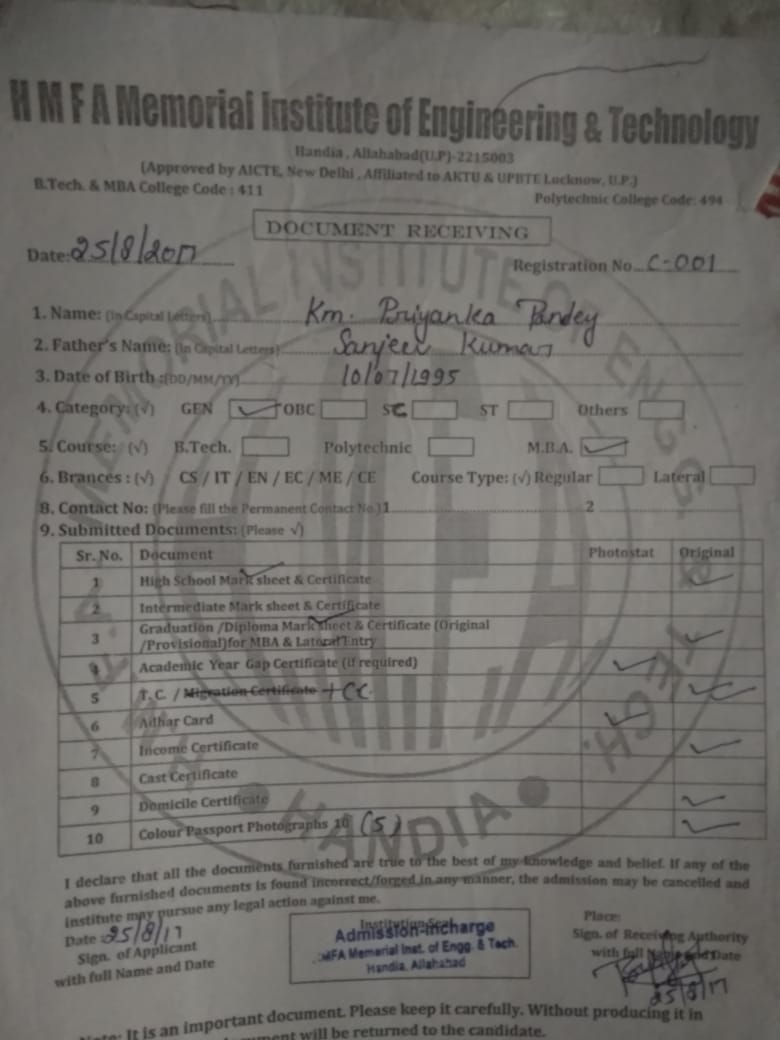 H M F A Memorial Institute of Engineering & Technology
Handia , Allahabad(U.P)-2215003
(Approved by AICTE, New Delhi , Affiliated to AKTU & UPBTE Lucknow, U.P.)
B.Tech. & MBA College Code : 411 Polytechnic College Code: 494
DOCUMENT RECEIVING
Date: 25/8/2017 Registration No... C-001
1. Name: (In Capital Letters) Km. Priyanka Pandey
2. Father's Name: (In Capital Letters) Sanjeev Kumar
3. Date of Birth :(DD/MM/YY) 10/07/1995
4. Category: (√) GEN ✓ OBC SC ST Others
5. Course: (√) B.Tech. Polytechnic M.B.A. ✓
6. Brances : (√) CS / IT / EN / EC / ME / CE Course Type: (√) Regular Lateral
8. Contact No: (Please fill the Permanent Contact No.)1 2
9. Submitted Documents: (Please √)
Sr. No. Document Photostat Original
1 High School Mark sheet & Certificate ✓
2 Intermediate Mark sheet & Certificate
3 Graduation /Diploma Mark sheet & Certificate (Original
/Provisional)for MBA & Lateral Entry ✓
4 Academic Year Gap Certificate (if required) ✓
5 T.C. / Migration Certificate + CC ✓
6 Adhar Card ✓
7 Income Certificate ✓
8 Cast Certificate
9 Domicile Certificate ✓
10 Colour Passport Photographs 10 (5) ✓
I declare that all the documents furnished are true to the best of my knowledge and belief. If any of the
above furnished documents is found incorrect/forged in any manner, the admission may be cancelled and
institute may pursue any legal action against me.
Date : 25/8/17
Sign. of Applicant
with full Name and Date
Institution Seal
Admission-Incharge
HMFA Memorial Inst. of Engg. & Tech.
Handia, Allahabad
Place:
Sign. of Receiving Authority
with full Name and Date
25/8/17
Note: It is an important document. Please keep it carefully. Without producing it in
will be returned to the candidate.
MEMORIAL INSTITUTE OF ENGG. & TECH.
HANDIA